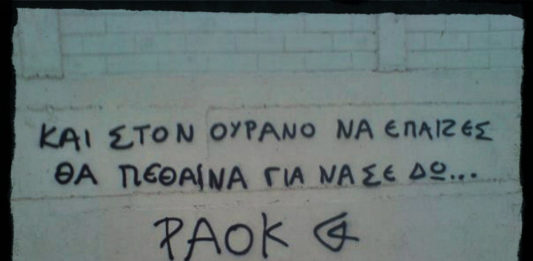 ΚΑΙ ΣΤΟΝ ΟΥΡΑΝΟ ΝΑ ΕΠΑΙΖΕΣ
ΘΑ ΠΕΘΑΙΝΑ ΓΙΑ ΝΑ ΣΕ ΔΩ...
PAOK